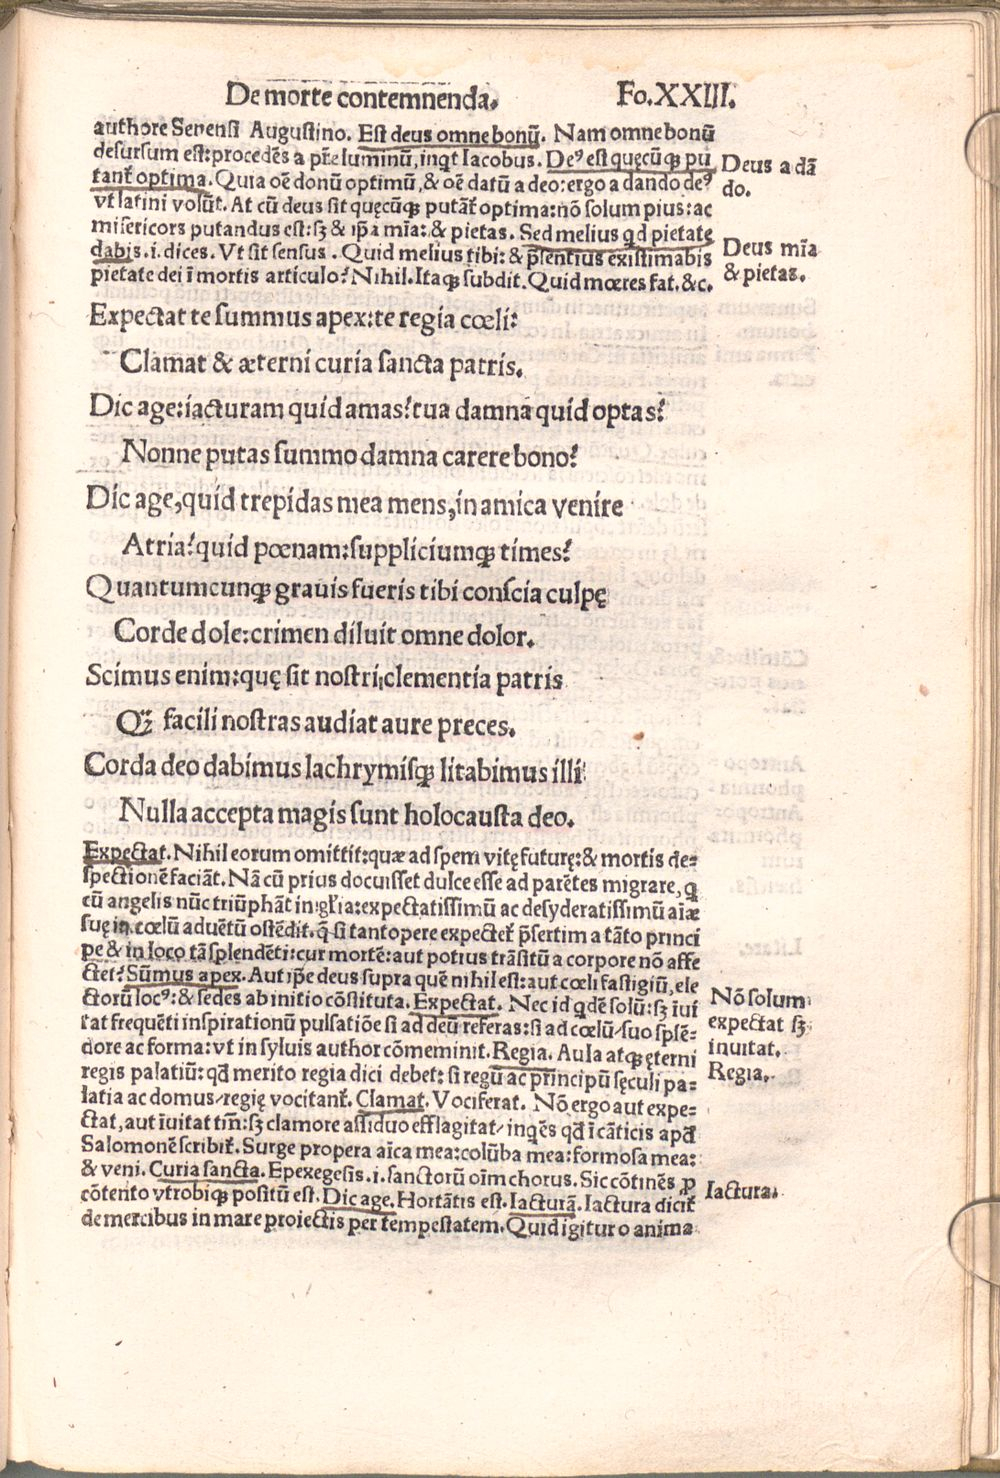 De morte contemnenda. Fo.XXIII.
authore Senensi Augustino. Est deus omne bonũ. Nam omne bonũ
desursum est: procedẽs a p̃re luminũ, inqt Iacobus. Deꝰ est quęcũqꝫ pu
tant̃ optima. Quia oẽ donũ optimũ, & oẽ datũ a deo: ergo a dando deꝰ
vt latini volũt. At cũ deus sit quęcũqꝫ putãt̃ optima: nõ solum pius: ac
misericors putandus est: sꝫ & ip̃a mĩa: & pietas. Sed melius qd pietate
dabis .i. dices. Vt sit sensus. Quid melius tibi: & p̃sentius existimabis
pietate dei ĩ mortis articulo? Nihil. Itaqꝫ subdit. Quid mœres fat. &c.
Deus a dã
do.
Deus mĩa
& pietas.
Expectat te summus apex: te regia cœli:
Clamat & æterni curia sancta patris.
Dic age: iacturam quid amas? tua damna quid optas?
Nonne putas summo damna carere bono?
Dic age, quid trepidas mea mens, in amica venire
Atria? quid pœnam: suppliciumqꝫ times?
Quantumcunqꝫ grauis fueris tibi conscia culpę
Corde dole: crimen diluit omne dolor.
Scimus enim: quę sit nostri clementia patris
Qꝫ̈ facili nostras audiat aure preces.
Corda deo dabimus lachrymisqꝫ litabimus illi
Nulla accepta magis sunt holocausta deo.
Expectat. Nihil eorum omittit: quæ ad spem vitę futurę: & mortis de⸗
spectionẽ faciãt. Nã cũ prius docuisset dulce esse ad parẽtes migrare, q
cũ angelis nũc triũphãt in gl̃ia: expectatissimũ ac desyderatissimũ aĩæ
suę in cœlũ aduẽtũ ostẽdit. q̃ si tantopere expectet̃ p̃sertim a tãto princi
pe & in loco tã splendẽti: cur mortẽ: aut potius trãsitũ a corpore nõ affe
ctet? Sũmus apex. Aut ip̃e deus supra quẽ nihil est: aut cœli fastigiũ, ele
ctorũ locꝰ: & sedes ab initio cõstituta. Expectat. Nec id qdẽ solũ: sꝫ ĩui
tat frequẽti inspirationũ pulsatiõe si ad deũ referas: si ad cœlũ/ suo splẽ⸗
dore ac forma: vt in syluis author cõmeminit. Regia. Aula atqꝫ ęterni
regis palatiũ: qđ merito regia dici debet: si regũ ac principũ sęculi pa⸗
latia ac domus/ regię vocitant̃. Clamat. Vociferat. Nõ ergo aut expe⸗
ctat, aut ĩuitat tm̃: sꝫ clamore assiduo efflagitat/ inqẽs qđ ĩ cãticis apđ
Salomonẽ scribit̃. Surge propera aĩca mea: colũba mea: formosa mea:
& veni. Curia sancta. Epexegesis .i. sanctorũ oĩm chorus. Sic cõtinẽs ꝓ
cõtento vtrobiqꝫ positũ est. Dic age. Hortãtis est. Iacturã. Iactura dicit̃
de mercibus in mare proiectis per tempestatem. Quid igitur o anima
Nõ solum
expectat sꝫ
inuitat.
Regia.
Iactura.